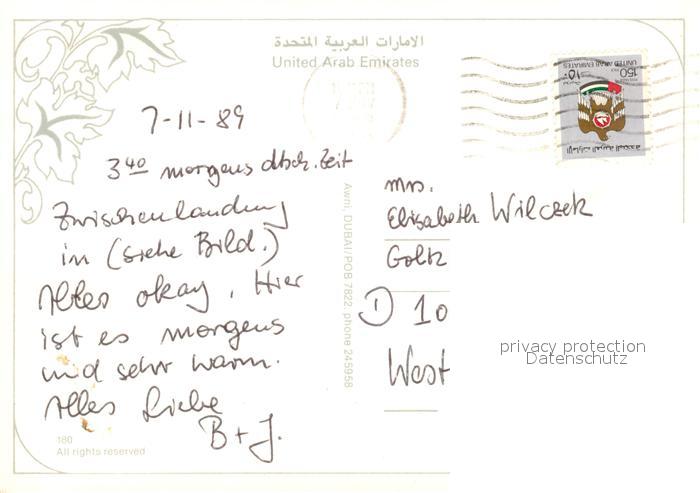 الامارات العربية المتحدة
United Arab Emirates
7-11-89
3 40 morgens dtsch. Zeit
Zwischenlandung
in (siehe Bild.)
Alles okay. Hier
ist es morgens
und sehr warm.
Alles Liebe
B + J.
180
All rights reserved
Awni, DUBAI/POB 7822, phone 245958
150
١٥٠
UNITED ARAB EMIRATES
الامارات العربية المتحدة
Mrs.
Elisabeth Wilczek
Goltz
D 10
West
privacy protection
Datenschutz